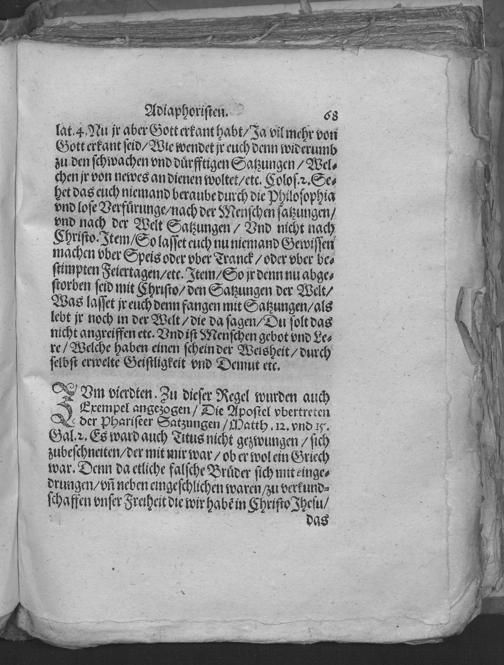 Adiaphoristen. 68
lat. 4. Nu jr aber Gott erkant habt/ Ja vil mehr von
Gott erkant seid/ Wie wendet jr euch denn widerumb
zu den schwachen vnd dürfftigen Satzungen/ Wel-
chen jr von newes an dienen woltet/ etc. Colos. 2. Se-
het das euch niemand beraube durch die Philosophia
vnd lose Verfürunge/ nach der Menschen satzungen/
vnd nach der Welt Satzungen/ Vnd nicht nach
Christo. Item/ So lasset euch nu niemand Gewissen
machen vber Speis oder vber Tranck/ oder vber be-
stimpten Feiertagen/ etc. Item/ So jr denn nu abge-
storben seid mit Christo/ den Satzungen der Welt/
Was lasset jr euch denn fangen mit Satzungen/ als
lebt jr noch in der Welt/ die da sagen/ Du solt das
nicht angreiffen etc. Vnd ist Menschen gebot vnd Le-
re/ Welche haben einen schein der Weisheit/ durch
selbst erwelte Geistligkeit vnd Demut etc.
ZVm vierdten. Zu dieser Regel wurden auch
Exempel angezogen/ Die Apostel vbertreten
der Phariseer Satzungen/ Matth. 12. vnd 15.
Gal. 2. Es ward auch Titus nicht gezwungen/ sich
zubeschneiten/ der mit mir war/ ob er wol ein Griech
war. Denn da etliche falsche Brüder sich mit einge-
drungen/ vñ neben eingeschlichen waren/ zu verkund-
schaffen vnser Freiheit die wir habẽ in Christo Jhesu/
das